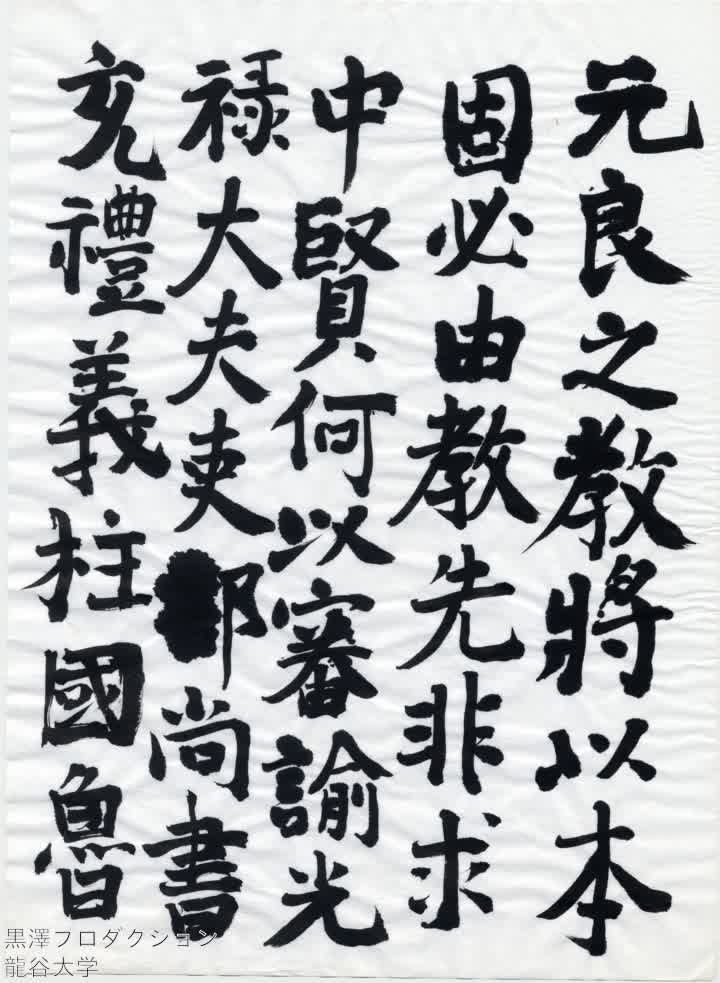 元良之教將以本
固必由教先非求
中賢何以審諭光
禄大夫吏部尚書
充禮義柱國魯
黒澤プロダクション
龍谷大学